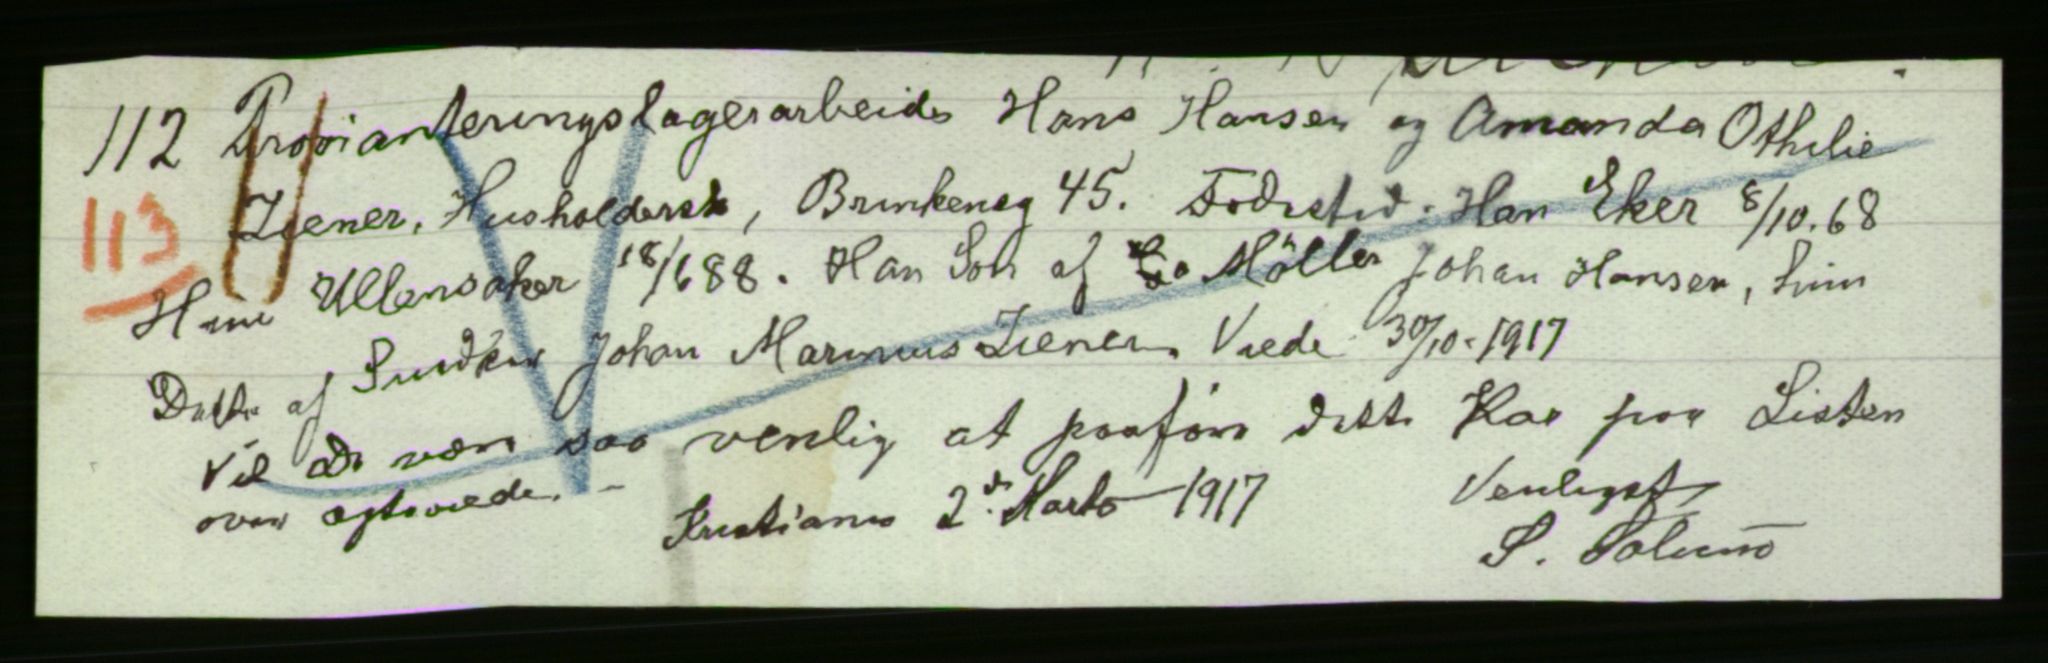 112 Provianteringslagerarbeider Hans Hansen og Amanda Othilie
113
Ziener, Husholdersk, Brinkensg 45. Fødested. Han Eker 8/10.68
Hun Ullensaker 18/688. Han Søn af Møller Johan Hansen, hun
Datter af Snedker Johan Marinus Ziener. Viede 30/10-1917
Vil De være saa venlig at paaføre dette Par paa Listen
over egteviede.
Kristiania 2. Marts 1917
Venligst
S. Solum